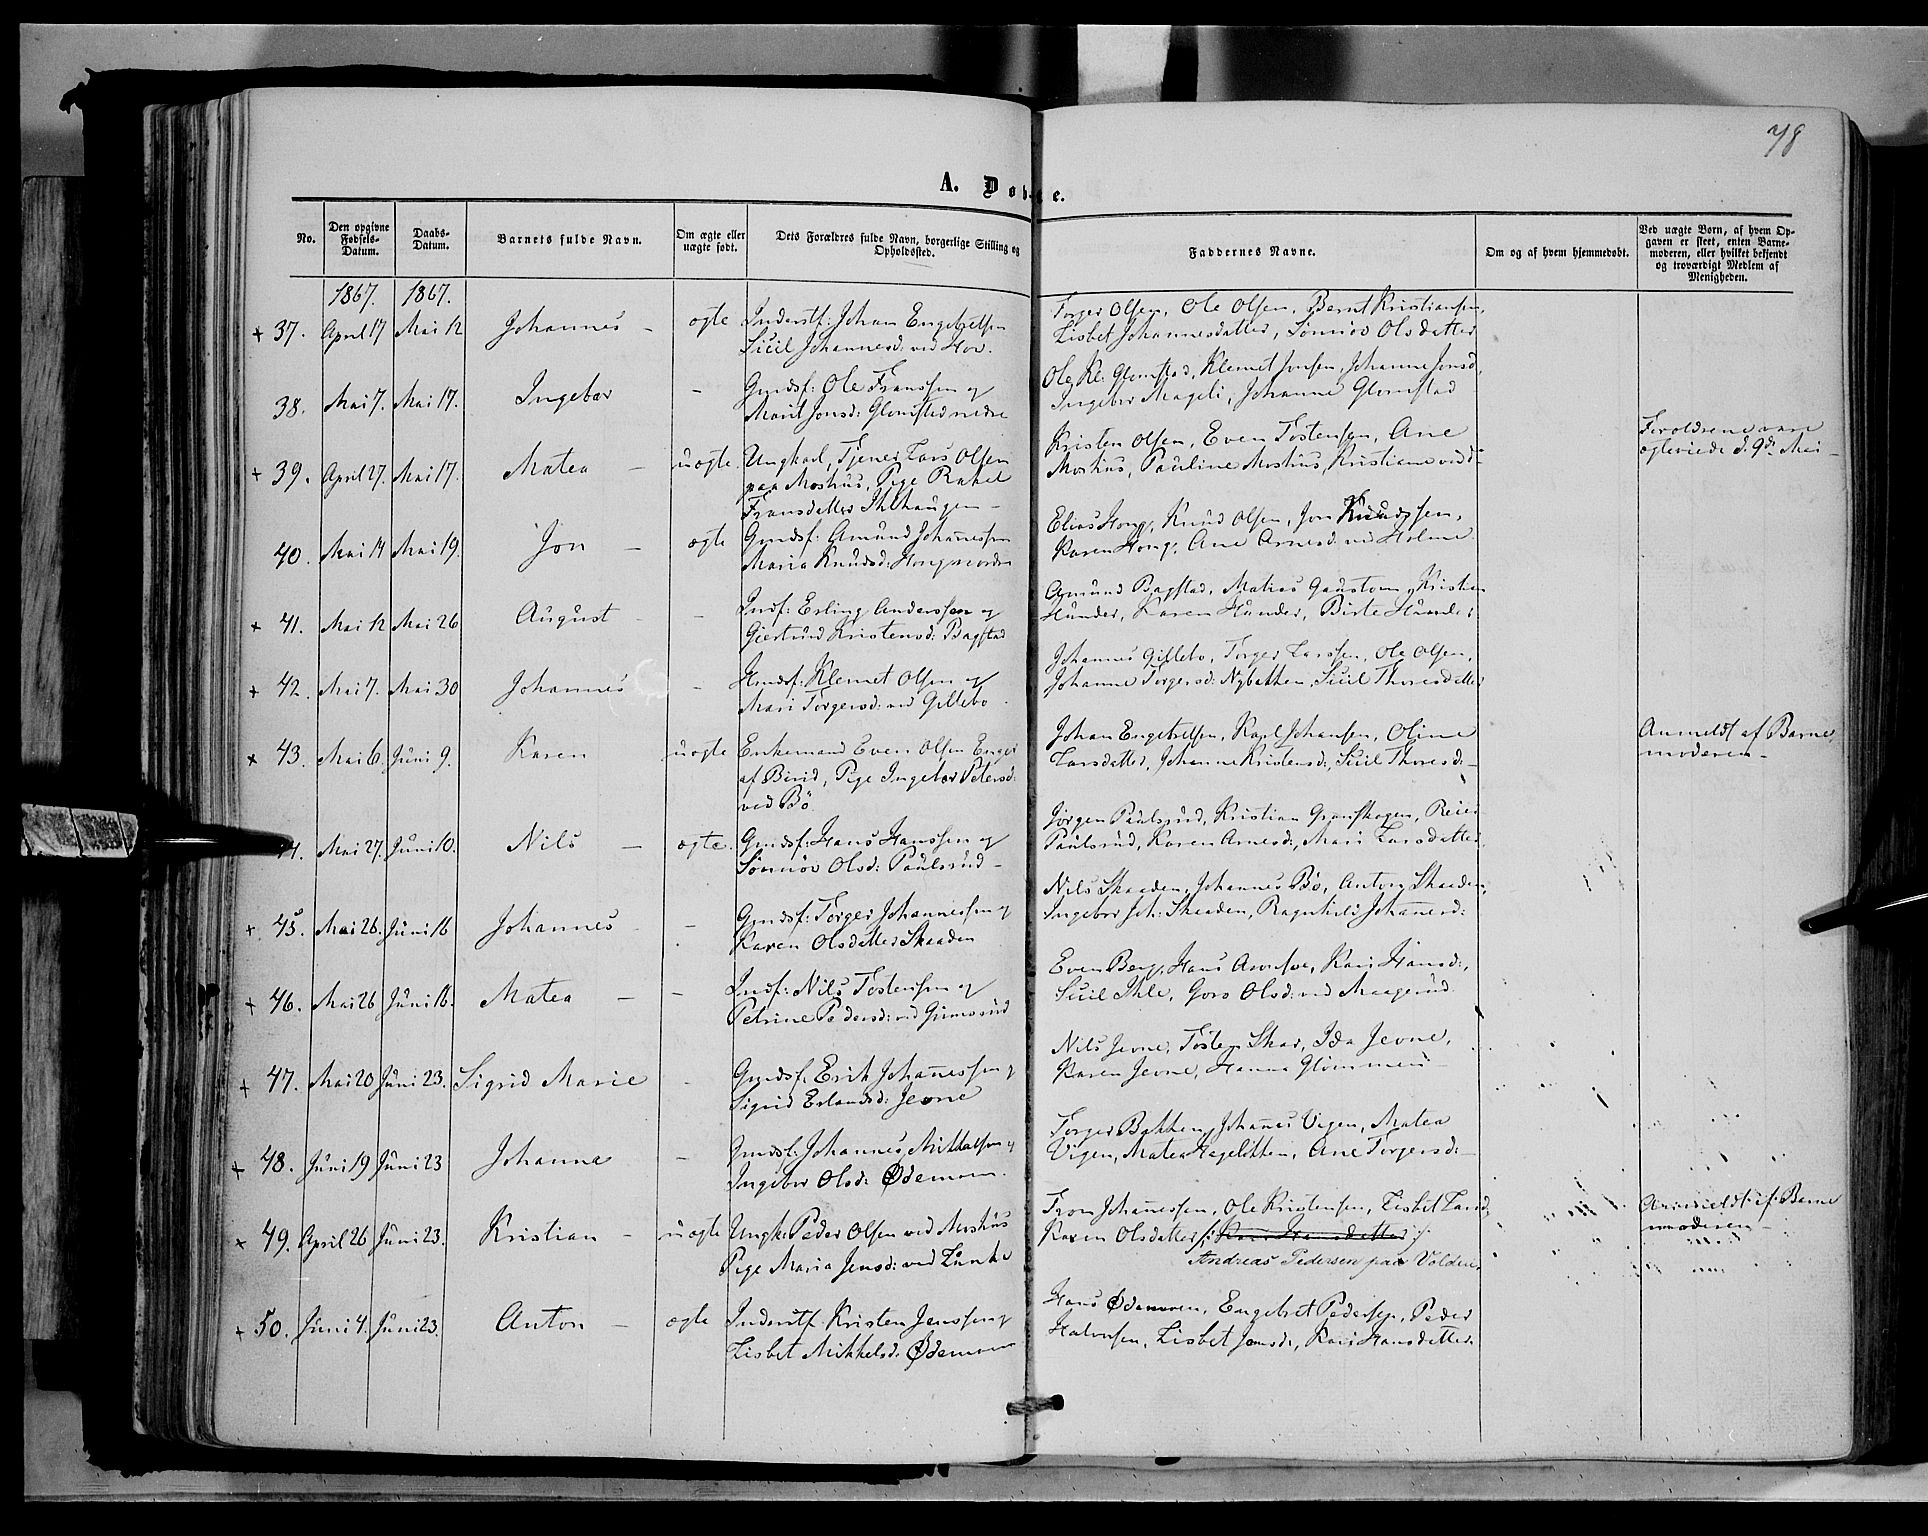 78
A. Døbte.
No.
Den opgivne Fødsels-Datum.
Daabs-Datum.
Barnets fulde Navn.
Om ægte eller uægte født.
Dets Forældres fulde Navn, borgerlige Stilling og Opholdssted.
Faddernes Navne.
Om og af hvem hjemmedøbt.
Ved uægte Børn, af hvem Opgaven er skeet, enten Barnemoderen, eller hvilket bekjendt og troværdigt Medlem af Menigheden.
1867. 1867.
+ 37. April 17 Mai 12 Johannes - ægte Inderstf: Johan Engebretsen
Sicil Johannesd: ved Hov.
Torger Olsen, Ole Olsen, Bernt Kristiansen,
Lisbet Johannesdatter, Sønnöv Olsdatter
38. Mai 7. Mai 17. Ingebor - Gmdsf: Ole Franssen og
Marit Jonsd: Glomstad nedre
Ole Kl: Glomstad, Klemet Jonsen, Johanne Jonsd,
Ingebor Mageli, Johanne Glomstad
+ 39. April 27. Mai 17. Matea - uægte. Ungkarl, Tjener Lars Olsen
paa Moshus, Pige Rakel
Fransdatter Ihlhaugen -
Kristen Olsen, Even Tostensen, Ane
Moshus, Pauline Moshus, Kristiane ved d:
Foroldrene vare
ægteviede d. 9de Mai -
40. Mai 14 Mai 19. Jon - ægte Gmdsf: Amund Johannessen
Maria Knudsd: Hong nordre
Elias Hong, Knud Olsen, Jon Knudssen,
Karen Hong, Ane Arnesd: ved Holme
+ 41. Mai 12 Mai 26 August - - Indf: Erling Anderssen og
Gjertrud Kristensd: Bagstad
Amund Bagstad, Matias Gaustom, Kristian
Hunder, Karen Hunder, Birte Hunder
+ 42. Mai 7. Mai 30 Johannes - Hmdsf: Klemet Olsen og
Mari Torgersd: ved Gillebo
Johannes Gillebo, Torger Larssen, Ole Olsen,
Johanne Torgersd: Nybakken, Sicil Thoresdatter
+ 43. Mai 6. Juni 9. Karen - uægte Enkemand Even Olsen Enger
af Birid, Pige Ingebor Petersd:
ved Bö.
Johan Engebretsen, Karl Johansen, Oline
Larsdatter, Johanne Kristensd:, Sicil Thoresd: -
Anmeldt af Barne
moderen -
Mai 27. Juni 10. Nils - ægte. Gmdsf: Hans Hanssen og
Sönnöv Olsd: Paulsrud -
Jørgen Paulsrud, Kristian Granskogen, Reier
Paulsrud, Karen Arnesd:, Mari Larsdatter.
+ 45. Mai 26. Juni 16 Johannes - - Gmdsf: Torger Johannessen og
Karen Olsdatter Skaaden
Nils Skaaden, Johannes Bö, Anton Skaaden,
Ingebor Joh: Skaaden, Ragnhild Johanesd:
+ 46. Mai 26 Juni 16. Matea - - Indf: Nils Tostensen og
Petrine Pedersd: ved Grimsrud
Even Berg, Hans Arnesen, Kari Hansd:,
Sicil Ihle, Goro Olsd: ved Maagerud.
+ 47. Mai 20 Juni 23. Sigrid Marie - Gmdsf: Erik Johannessen og
Sigrid Erlandsd: Jevne
Nils Jevne, Tosten Skar, Ida Jevne,
Karen Jevne, Hanna Glömmen
+ 48. Juni 19 Juni 23 Johanne - Gmdsf: Johannes Mikkelsen og
Ingebor Olsd: Ødemoen.
Torger Bakken, Johanes Vigen, Matea
Vigen, Matea Hagelökken, Ane Torgersd: -
+ 49. April 26 Juni 23. Kristian - uægte Ungk: Peder Olsen ved Moshus
Pige Maria Jensd: ved Lunke
Johanessen, Ole Kristensen, Lisbet
Karen Olsdatter /: Kari Hansdatter :/
Andreas Pedersen paa Volden.
Anmeldt af Barne
moderen -
+ 50. Juni 4. Juni 23. Anton - ægte Inderstf. Kristen Jenssen og
Lisbet Mikkelsd: Ødemoen
Hans Ødemoen, Engebret Pedersen, Peder
Halvorsen, Lisbet Jensd:, Kari Hansdatter.